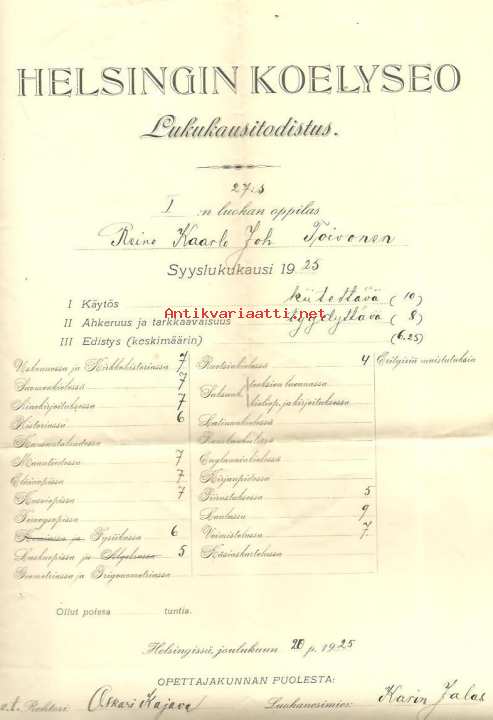 HELSINGIN KOELYSEO
Lukukausitodistus.
27:s
I :n luokan oppilas
Reino Kaarlo Joh. Toivonen
Syyslukukausi 1925
I Käytös kiitettävä (10)
II Ahkeruus ja tarkkaavaisuus tyydyttävä (8)
III Edistys (keskimäärin) (6.25)
Antikvariaatti.net
Uskonnossa ja Kirkkohistoriassa 7
Suomenkielessä 7
Ainekirjoituksessa 7
Historiassa 6
Kansantaloudessa
Maantiedossa 7
Eläinopissa 7
Kasviopissa 7
Terveysopissa
Kemiassa ja Fysiikassa 6
Laskuopissa ja Algebrassa 5
Geometriassa ja Trigonometriassa
Ruotsinkielessä 4
Saksank.
Latinankielessä
Englanninkielessä
Kirjanpidossa
Piirustuksessa 5
Laulussa 9
Voimistelussa 7
Käsiaskartelussa
Erityisiä muistutuksia
Ollut poissa tuntia.
Helsingissä, joulukuun 20 p. 1925
OPETTAJAKUNNAN PUOLESTA:
v.t. Rehtori Oskari Kajava Luokanesimies Karin Jalas